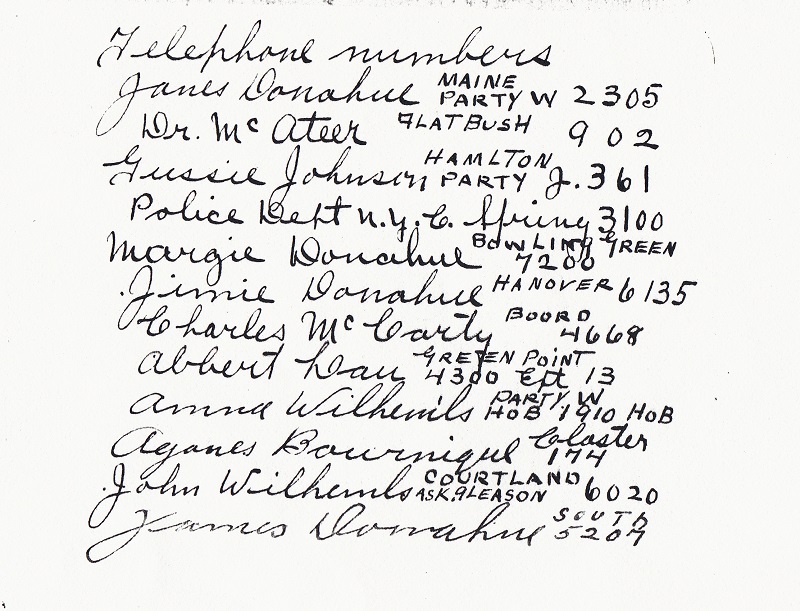 Telephone numbers
Janes Donahue MAINE PARTY W 2305
Dr. Mc Ateer FLATBUSH 902
Gussie Johnson HAMLTON PARTY J. 361
Police Dept N.Y.C. Spring 3100
Margie Donahue BOWLING GREEN 7200
Jimie Donahue HANOVER 6135
Charles Mc Carty BOORD 4668
Abbert Dau GREEN POINT 4300 Ext 13
Anna Wilhemls PARTY W HOB 1910 HOB
Aganes Bournique Closter 174
John Wilhemls COURTLAND ASK. GLEASON 6020
James Donahue SOUTH 5207